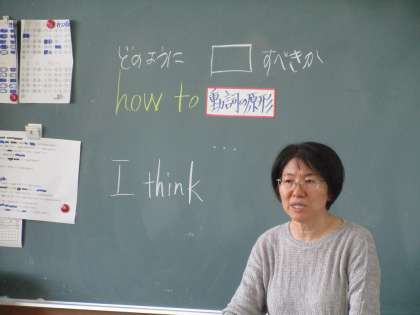 どのように □ すべきか
how to 動詞の原形
...
I think